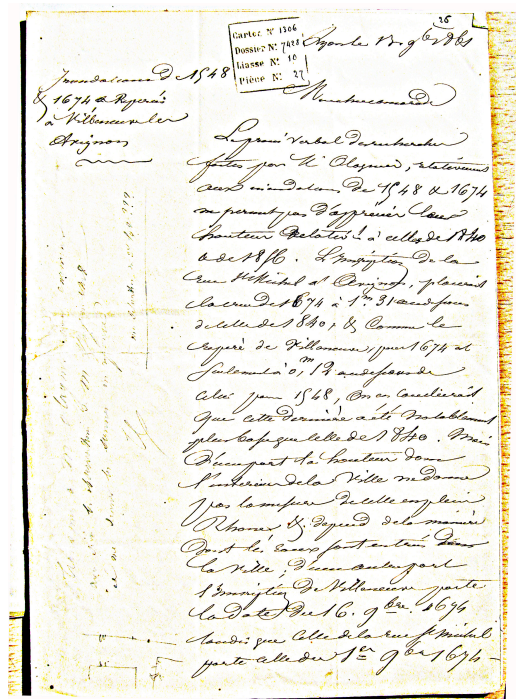 26
Carton N° 1306
Dossier N° 7428
Liasse N° 10
Pièce N° 27
Lyon le 13 9bre 1861
Inondations de 1548
& 1674 Repères
à Villeneuve lez
Avignon
Mon cher camarade
Le procès verbal de recherches
faites par Mr Olagnier, relativement
aux inondations de 1548 & 1674
ne permet pas d'apprécier leur
hauteur relativt à celles de 1840
& de 1856. L'inscription de la
rue St Michel à Avignon, placerait
la crue de 1674 à 1m 31 au dessous
de celle de 1840, & Comme le
repère de Villeneuve, pour 1674 est
seulement à 0m,12 au dessous de
celui pour 1548, on en conclurait
que cette dernière a été notablement
plus basse que celle de 1840. Mais
d'une part la hauteur dans
l'intérieur de la Ville ne donne
pas la mesure de celle en plein
Rhône, & dépend de la manière
dont les eaux sont entrées dans
la Ville; d'une autre part
l'Inscription de Villeneuve porte
la date du 16. 9bre 1674
tandis que celle de la rue St Michel
porte celle du 1er 9bre 1674 -